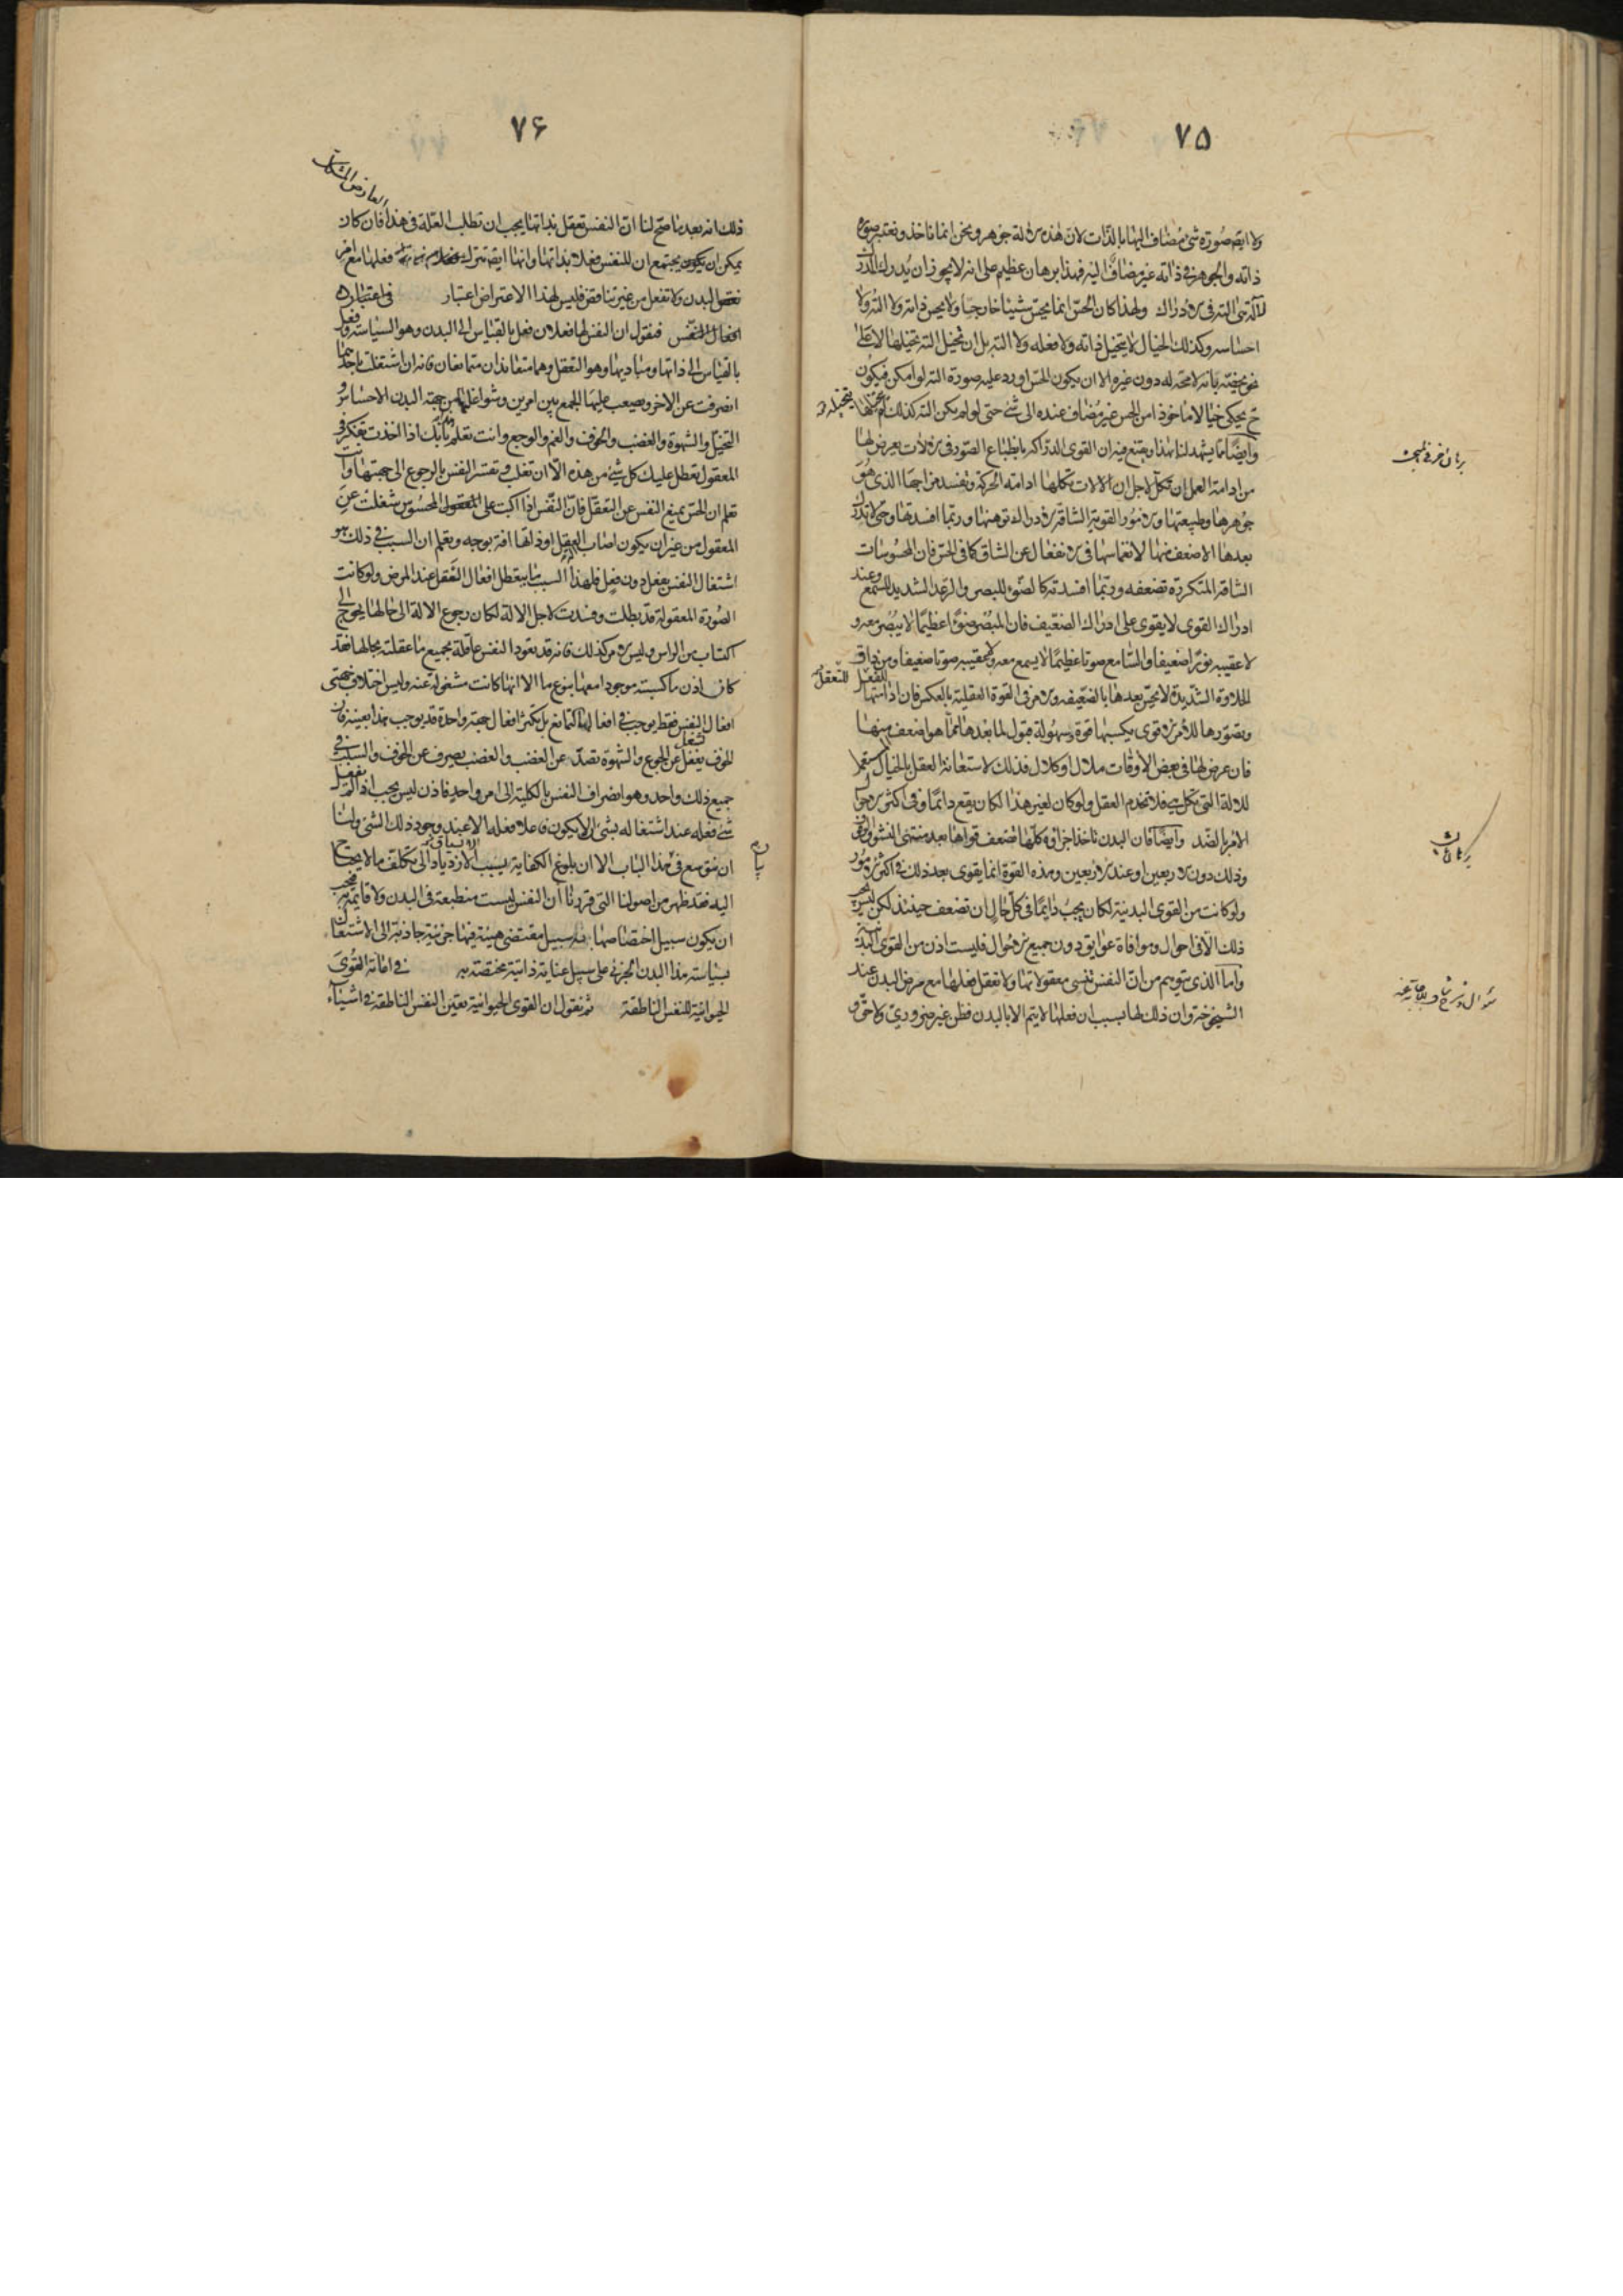 ٧٥
ولا ايضه صورة شئ مضاف اليها بالذات لان هذه الآلة جوهر ونحن انما ناخذ ونعتبر صورة
ذاته والجوهر فى ذاته غير مضاف اليه فهذا برهان عظيم على انه لا يجوز ان يدرك المدرك
لآلة هى آلته فى الادراك ولهذا كان الحس انما يحس شيئا خارجيا ولا يحس ذاته ولا آلته ولا
احساسه وكذلك الخيال لا يتخيل ذاته ولا فعله ولا آلته بل ان تخيل آلته تخيلها لا على
نحو يخصه بانه لا محة له دون غيره الا ان يكون الحس اورد عليه صورة آلته لو امكن فيكون
ح يحكى خيالا ماخوذا من الحس غير مضاف عنده الى شئ حتى لو لم يكن آلته كذلك لم يتخيلها
يتخيله
وايضا مما يشهد لنا بهذا ويقنع فيه ان القوى الدراكه بانطباع الصور فى الآلات يعرض لها
برهان اخر فى المبحث
من ادامة العمل ان تكل لاجل ان الالات تكلها ادامة الحركة وتفسد مزاجها الذى هو
جوهرها وطبيعتها والامور القوية الشاقة الادراك توهنها وربما افسدتها وحتى لا تدرك
بعدها الاضعف منها لانغماسها فى الانفعال عن الشاق كما فى الحس فان المحسوسات
الشاقة المتكررة تضعفه وربما افسدته كالضوء للبصر والرعد الشديد للسمع وعند
ادراك القوى لا يقوى على ادراك الضعيف فان المبصر ضوءا عظيما لا يبصر معه و
لا عقيبه نورا ضعيفا والسامع صوتا عظيما لا يسمع معه ولا عقيبه صوتا ضعيفا ومن ذاق
الحلاوة الشديدة لا يحس بعدها بالضعيفه والامر فى القوة العقلية بالعكس فان ادامتها
للفعل للتعقل
وتصورها للامر الاقوى يكسبها قوة وسهولة قبول لما بعدها مما هو اضعف منها
فان عرض لها فى بعض الأوقات ملال او كلال فذلك لاستعانة العقل بالخيال المستعمل
للالة التى تكل هى فلا تخدم العقل ولو كان لغير هذا لكان يقع دائما وفى اكثر الاحوال
الامر بالضد وايضا فان البدن تاخذ اجزاؤه كلها تضعف قواها بعد منتهى النشو والوقوف
برهان ثالث
وذلك دون الاربعين او عند الاربعين وهذه القوة انما يقوى بعد ذلك فى اكثر الامور
ولو كانت من القوى البدنية لكان يجب دائما فى كل حال ان تضعف حينئذ لكن ليس يجب
ذلك الا فى احوال وموافاة عوايق دون جميع الاحوال فليست اذن من القوى البدنية
واما الذى يتوهم من ان النفس تنسى معقولاتها ولا تفعل فعلها مع مرض البدن عند
الشيخوخة وان ذلك لها بسبب ان فعلها لا يتم الا بالبدن فظن غير ضرورى ولا حق و
٧۶
ذلك انه بعد ما صح لنا ان النفس تعقل بذاتها يجب ان تطلب العلة فى هذا فان كان
العارض المشكك
يمكن ان يكون يجتمع ان للنفس فعلا بذاتها وانها ايضه تترك فعلها مع امر
نقص البدن ولا تفعل من غير تناقض فليس لهذا الاعتراض اعتبار فى اعتبار
افعال النفس فنقول ان النفس لها فعلان فعل بالقياس الى البدن وهو السياسة وفعل
بالقياس الى ذاتها ومباديها وهو التعقل وهما متعاندان متمانعان فانه ان اشتغلت باحدهما
انصرفت عن الاخر ويصعب عليها الجمع بين امرين وشواغلها من جهة البدن الاحساس و
التخيل والشهوة والغضب والخوف والغم والوجع وانت تعلم هذا بانك اذا اخذت تفكر فى
المعقول تعطل عليك كل شئ من هذه الا ان تغلب وتقسر النفس بالرجوع الى جهتها وانت
تعلم ان الحس يمنع النفس عن التعقل فان النفس اذا اكبت على المحسوس شغلت عن
المعقول من غير ان يكون اصاب العقل او ذاتها افة بوجه وتعلم ان السبب فى ذلك هو
اشتغال النفس بفعل دون فعل فلهذا السبب ما يتعطل افعال العقل عند المرض ولو كانت
الصورة المعقولة قد بطلت وفسدت لاجل الالة لكان رجوع الالة الى حالها يحوج الى
اكتساب من الراس وليس الامر كذلك فانه قد تعود النفس عاقلة بجميع ما عقلته بحالها فقد
كان اذن ما كسبته موجودا معها بنوع ما الا انها كانت مشغولة عنه وليس اختلاف جهتى
افعال النفس فقط يوجب فى افعالها التمانع بل تكثر افعال جهة واحدة قد يوجب هذا بعينه فان
الخوف يغفل عن الجوع والشهوة تصد عن الغضب والغضب يصرف عن الخوف والسبب فى
تشغل
جميع ذلك واحد وهو انصراف النفس بالكلية الى امر واحد فاذن ليس يجب اذا لم يفعل
شئ فعله عند اشتغاله بشئ ان لا يكون فاعلا فعله الا عند وجود ذلك الشئ ولنا
ان نتوسع فى هذا الباب الا ان بلوغ الكفاية يسبب الازدياد الى تكلف ما لا يحتاج
اليه فقد ظهر من اصولنا التى قررنا ان النفس ليست منطبعة فى البدن ولا قايمة به فيجب
ان يكون سبيل اختصاصها به سبيل مقتضى هيئة فيها جزئية جاذبة الى الاشتغال
بسياسة هذا البدن الجزئى على سبيل عناية ذاتية مختصة به فى اعانة القوى
الحيوانية للنفس الناطقة ثم نقول ان القوى الحيوانية تعين النفس الناطقة فى اشياء